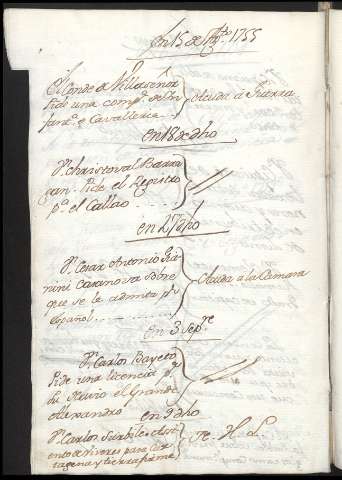 en 15 de Agto. 1755
El Conde de Villaseñor
Pide una compª. de In
fantª. o Cavalleria
Acuda a Guerra
en 18 de dho
Dn. Christoval Barra
gan. Pide el Registro
pª. el Callao
en 27 dho
Dn. Cesar Antonio
nini Casanova sobre
que se le admita pr.
español
Acuda a la Camara
en 3 Sepre.
Dn. Carlos Bayeto
Pide una licencia pª.
su Navio el Grande
Alexandro
en 9 dho
Dn. Carlos Surbile Asi
ento de Viveres para Car
tagena y tierra firme